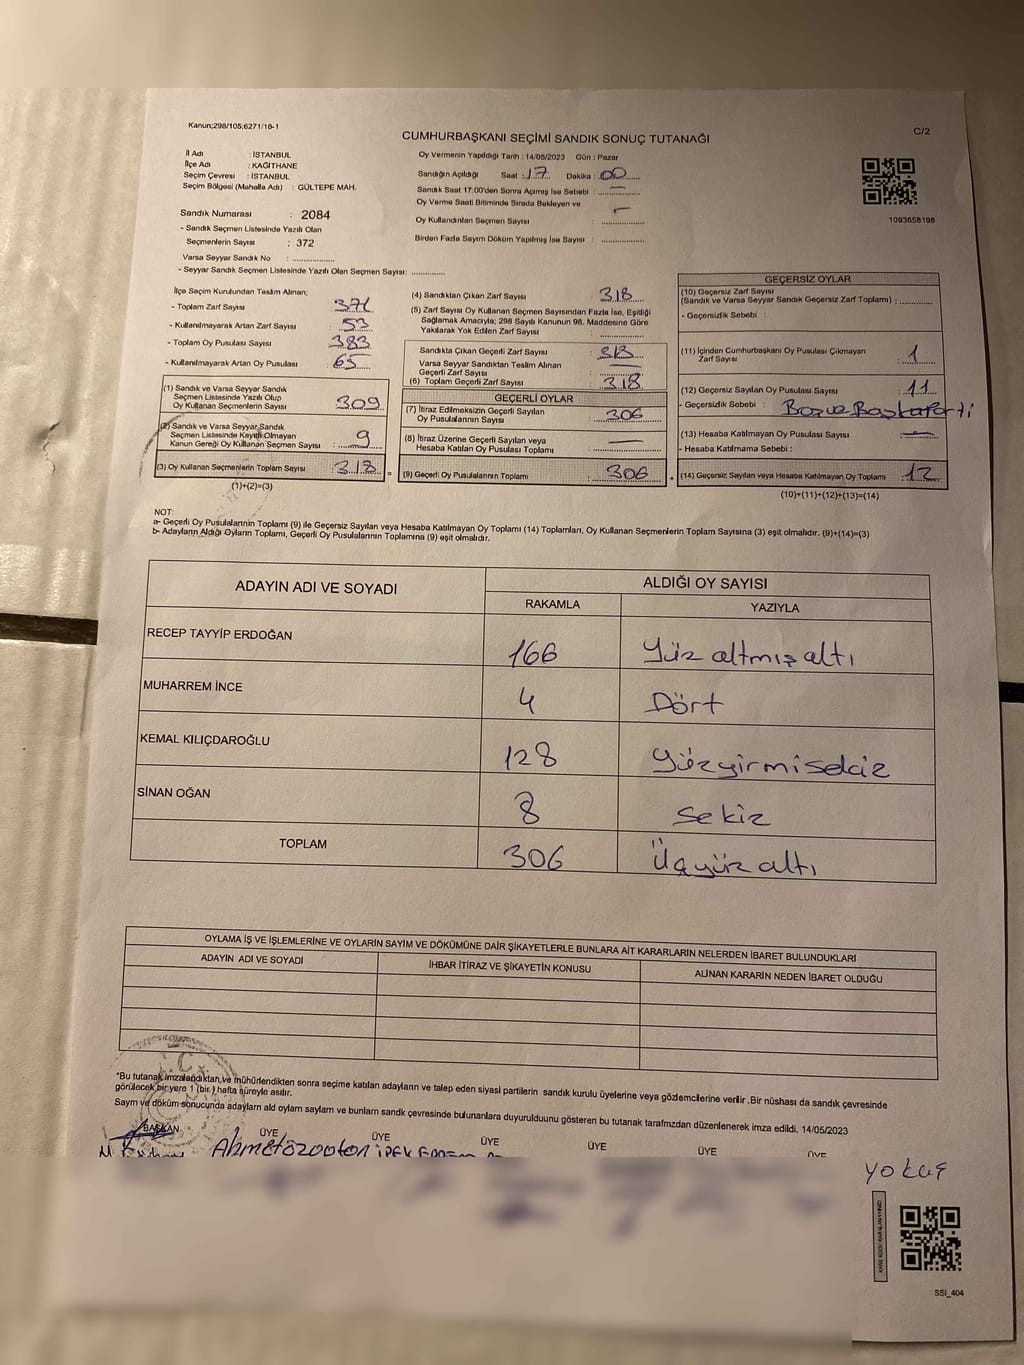 Kanun;298/105;6271/18-1
C/2
CUMHURBAŞKANI SEÇİMİ SANDIK SONUÇ TUTANAĞI
İl Adı : İSTANBUL
İlçe Adı : KAĞITHANE
Seçim Çevresi : İSTANBUL
Seçim Bölgesi (Mahalle Adı) : GÜLTEPE MAH.
Sandık Numarası : 2084
- Sandık Seçmen Listesinde Yazılı Olan
Seçmenlerin Sayısı : 372
Varsa Seyyar Sandık No :
- Seyyar Sandık Seçmen Listesinde Yazılı Olan Seçmen Sayısı:
Oy Vermenin Yapıldığı Tarih : 14/05/2023 Gün : Pazar
Sandığın Açıldığı Saat : 17 Dakika : 00
Sandık Saat 17:00'den Sonra Açımış İse Sebebi : —
Oy Verme Saati Bitiminde Sırada Bekleyen ve
Oy Kullandırılan Seçmen Sayısı :
Birden Fazla Sayım Döküm Yapılmış İse Sayısı :
1093658198
İlçe Seçim Kurulundan Teslim Alınan;
- Toplam Zarf Sayısı : 371
- Kullanılmayarak Artan Zarf Sayısı : 53
- Toplam Oy Pusulası Sayısı : 383
- Kullanılmayarak Artan Oy Pusulası : 65
(1) Sandık ve Varsa Seyyar Sandık
Seçmen Listesinde Yazılı Olup
Oy Kullanan Seçmenlerin Sayısı : 309
(2) Sandık ve Varsa Seyyar Sandık
Seçmen Listesinde Kayıtlı Olmayan
Kanun Gereği Oy Kullanan Seçmen Sayısı : 9
(3) Oy Kullanan Seçmenlerin Toplam Sayısı : 318
(1)+(2)=(3)
(4) Sandıktan Çıkan Zarf Sayısı : 318
(5) Zarf Sayısı Oy Kullanan Seçmen Sayısından Fazla İse, Eşitliği
Sağlamak Amacıyla; 298 Sayılı Kanunun 98. Maddesine Göre
Yakılarak Yok Edilen Zarf Sayısı :
Sandıkta Çıkan Geçerli Zarf Sayısı : 318
Varsa Seyyar Sandıktan Teslim Alınan
Geçerli Zarf Sayısı : —
(6) Toplam Geçerli Zarf Sayısı : 318
GEÇERLİ OYLAR
(7) İtiraz Edilmeksizin Geçerli Sayılan
Oy Pusulalarının Sayısı : 306
(8) İtiraz Üzerine Geçerli Sayılan veya
Hesaba Katılan Oy Pusulası Toplamı : —
(9) Geçerli Oy Pusulalarının Toplamı : 306
GEÇERSİZ OYLAR
(10) Geçersiz Zarf Sayısı
(Sandık ve Varsa Seyyar Sandık Geçersiz Zarf Toplamı) :
- Geçersizlik Sebebi :
(11) İçinden Cumhurbaşkanı Oy Pusulası Çıkmayan
Zarf Sayısı : 1
(12) Geçersiz Sayılan Oy Pusulası Sayısı : 11
- Geçersizlik Sebebi :
(13) Hesaba Katılmayan Oy Pusulası Sayısı : —
- Hesaba Katılmama Sebebi :
(14) Geçersiz Sayılan veya Hesaba Katılmayan Oy Toplamı : 12
(10)+(11)+(12)+(13)=(14)
NOT:
a- Geçerli Oy Pusulalarının Toplamı (9) ile Geçersiz Sayılan veya Hesaba Katılmayan Oy Toplamı (14) Toplamları, Oy Kullanan Seçmenlerin Toplam Sayısına (3) eşit olmalıdır. (9)+(14)=(3)
b- Adayların Aldığı Oyların Toplamı, Geçerli Oy Pusulalarının Toplamına (9) eşit olmalıdır.
ADAYIN ADI VE SOYADI
ALDIĞI OY SAYISI
RAKAMLA YAZIYLA
RECEP TAYYİP ERDOĞAN 166 Yüz altmış altı
MUHARREM İNCE 4 Dört
KEMAL KILIÇDAROĞLU 128 Yüzyirmisekiz
SİNAN OĞAN 8 Sekiz
TOPLAM 306 Üçyüz altı
OYLAMA İŞ VE İŞLEMLERİNE VE OYLARIN SAYIM VE DÖKÜMÜNE DAİR ŞİKAYETLERLE BUNLARA AİT KARARLARIN NELERDEN İBARET BULUNDUKLARI
ADAYIN ADI VE SOYADI İHBAR İTİRAZ VE ŞİKAYETİN KONUSU ALINAN KARARIN NEDEN İBARET OLDUĞU
*Bu tutanak imzalandıktan ve mühürlendikten sonra seçime katılan adayların ve talep eden siyasi partilerin sandık kurulu üyelerine veya gözlemcilerine verilir .Bir nüshası da sandık çevresinde
görülecek bir yere 1 (bir.) hafta süreyle asılır.
Sayım ve döküm sonucunda adayların ald oyların sayıları ve bunların sandık çevresinde bulunanlara duyurulduunu gösteren bu tutanak tarafmzdan düzenlenerek imza edildi. 14/05/2023
BAŞKAN ÜYE ÜYE ÜYE ÜYE ÜYE ÜYE
SSI_404